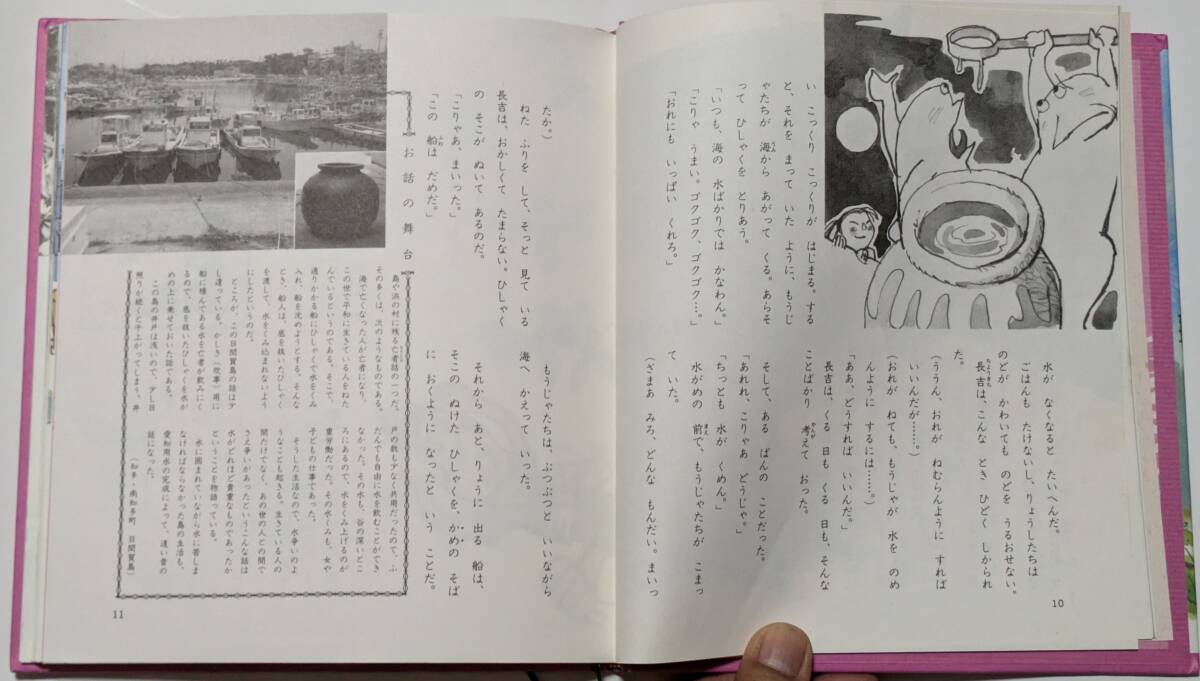 い こっくり こっくりが はじまる。する
と、それを まって いた ように、もうじ
ゃたちが 海から あがって くる。あらそ
って ひしゃくを とりあう。
「いつも、海の 水ばかりでは かなわん。」
「こりゃ うまい。ゴクゴク、ゴクゴク…。」
「おれにも いっぱい くれろ。」
水が なくなると たいへんだ。
ごはんも たけないし、りょうしたちは
のどが かわいても のどを うるおせない。
長吉は、こんな とき ひどく しかられ
た。
(ううん、おれが ねむらんように すれば
いいんだが……。)
(おれが ねても、もうじゃが 水を のめ
んように するには……。)
「ああ、どうすれば いいんだ。」
長吉は、くる 日も くる 日も、そんな
ことばかり 考えて おった。
そして、ある ばんの ことだった。
「あれれ、こりゃあ どうじゃ。」
「ちっとも 水が くめん。」
水がめの 前で、もうじゃたちが こまっ
て いた。
(ざまあ みろ、どんな もんだい。まいっ
10
たか。)
ねた ふりを して、そっと 見て いる
長吉は、おかしくて たまらない。ひしゃく
の そこが ぬいて あるのだ。
「こりゃあ、まいった。」
「この 船は だめだ。」
もうじゃたちは、ぶつぶつと いいながら
海へ かえって いった。
それから あと、りょうに 出る 船は、
そこの ぬけた ひしゃくを、かめの そば
に おくように なったと いう ことだ。
お話の舞台
島や浜の村に残る亡者話の一つだ。
その多くは、次のようなものである。
海で亡くなった人が亡者になり、
この世で平和に生きている人をねた
んでいるというのである。そこで、
通りかかる船にひしゃくで水をくみ
入れ、船を沈めようとする。そんな
とき、船人は、底を抜いたひしゃく
を渡して、水をくみ込まれないよう
にしたというのだ。
ところが、この日間賀島の話は少
し違っている。かしき(炊事)用に
船に積んである水を亡者が飲みにく
るので、底を抜いたひしゃくを水が
めの上に乗せておいた話である。
この島の井戸は浅いので、少し日
照りが続くと干上がってしまう。井
戸の数も少なく共用だったので、ふ
だんでも自由に水を飲むことができ
なかった。その水も、谷の深いとこ
ろにあるので、水をくみ上げるのが
重労働だった。その水くみも、女や
子どもの仕事であった。
そうした生活なので、水争いのよ
うなことも起きる。生きている人の
間だけでなく、あの世の人との間で
さえ争いがあったというこんな話は
水がどれほど貴重なものであったか
ということを物語っている。
水に囲まれていながら水に苦しま
なければならなかった島の生活も、
愛知用水の完成によって、遠い昔の
話になった。
(知多・南知多町 日間賀島)
11